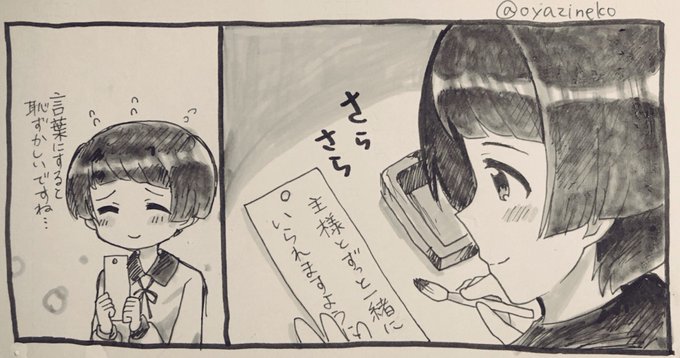 @oyazineko
さら
さら
主様とずっと一緒に
いられますように
言葉にすると
恥ずかしいですね…